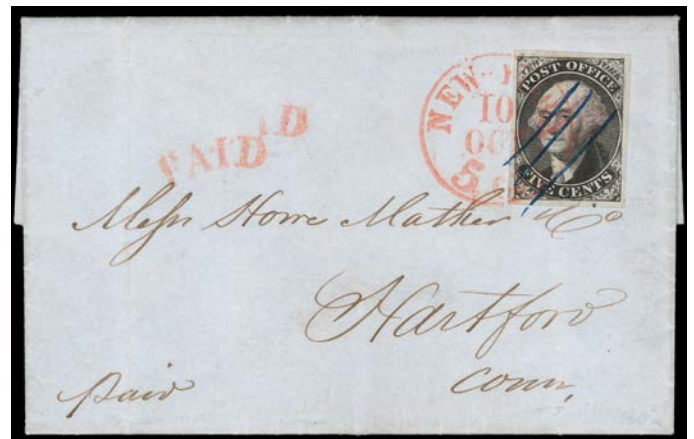 NEW-Y
10
OC
5 C
POST OFFICE
FIVE CENTS
PAID
PAID
Messrs Howe Mather & Co
Hartford
Conn.
Paid